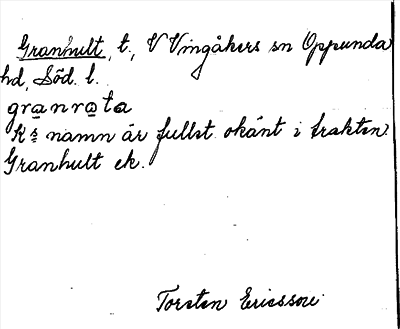 Granhult, t., V Vingåkers sn Oppunda
hd, Söd. l.
granrota
Ks namn är fullst. okänt i trakten.
Granhult ek.
Torsten Ericsson